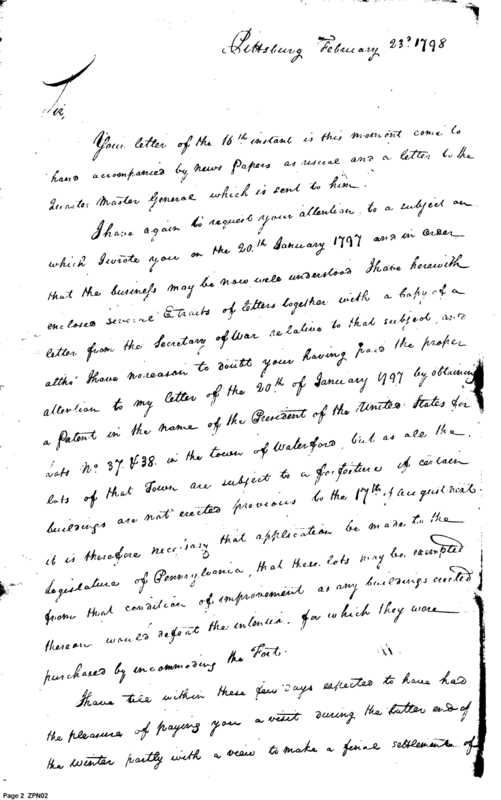 Pittsburg February 23d 1798
Sir,
Your letter of the 16th instant is this moment come to
hand accompanied by news Papers as usual and a letter to the
Quarter Master General which is sent to him.
I have again to request your attention to a subject on
which I wrote you on the 20th January 1797 and in order
that the business may be now well understood I have herewith
enclosed several Extracts of letters together with a Copy of a
letter from the Secretary of War relative to that subject and
altho' I have no reason to doubt your having paid the proper
attention to my letter of the 20th of January 1797 by obtaining
a Patent in the name of the President of the United States for
Lots No. 37. & 38. in the town of Waterford, but as all the
lots of that Town are subject to a forfeiture if certain
buildings are not erected previous to the 17th of August next
it is therefore necessary that application be made to the
Legislature of Pennsylvania, that these lots may be exempted
from that condition of improvement as any buildings erected
thereon would defeat the intention for which they were
purchased by incommoding the Fort.
I have till within these few days expected to have had
the pleasure of paying you a visit during the latter end of
the winter partly with a view to make a final settlement of
Page 2 ZPN02